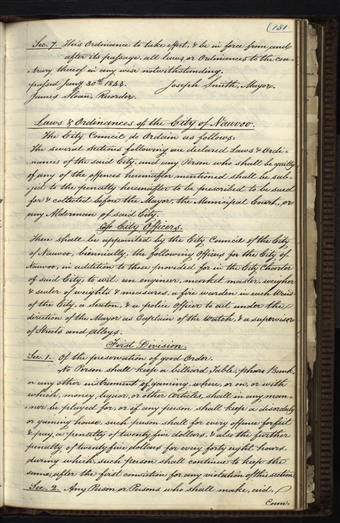 (181)
Sec. 7. This Ordinance to take effect, & be in force from and
after its passage, all laws or Ordinances to the con-
trary thereof in any wise notwithstanding.
passed Jany 30th 1844. Joseph Smith, Mayor.
James Sloan, Recorder.
Laws & Ordinances of the City of Nauvoo.
The City Council do Ordain as follows:
The several Sections following are declared Laws & Ordi-
nances of the said City, and any Person who shall be guilty
of any of the offences hereinafter mentioned shall be sub-
ject to the penalty hereinafter to be prescribed to be sued
for & collected before the Mayor, the Municipal Court, or
any Alderman of said City.
Of City Officers.
There shall be appointed by the City Council of the City
of Nauvoo, biennially, the following Officers for the City of
Nauvoo, in addition to those provided for in the City Charter
of said City, to wit, an engineer, market master, weigher
& sealer of weights & measures, a fire warden in each Ward
of the City, a Sexton, & a police officer to act under the
direction of the Mayor as Captain of the Watch, & a supervisor
of Streets and alleys.
First Division.
Sec. 1. Of the preservation of good Order.
No Person shall keep a billiard Table, pharo Bank,
or any other instrument of gaming, where, on, or with
which, money, liquor, or other Articles, shall in any man-
ner be played for, or if any person shall keep a disorderly
or gaming house, such person shall for every offence forfeit
& pay, a penalty of twenty five dollars, & also the further
penalty of twenty five dollars for every forty eight hours
during which, such person shall continue to keep the
same, after the first conviction for any violation of this section.
Sec. 2. Any Person or Persons who shall make, aid,
Coun-